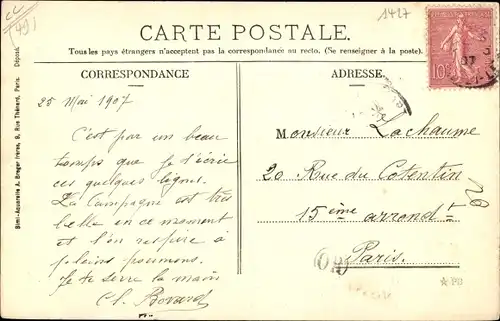 1427
CARTE POSTALE.
Tous les pays étrangers n'acceptent pas la correspondance au recto. (Se renseigner à la poste).
CORRESPONDANCE
ADRESSE.
Simi-Aquarelle A. Breger Frères, 9, Rue Thénard, Paris. Déposé.
25 Mai 1907
C'est par un beau
temps que je t'écris
ces quelques lignes.
La Campagne est très
belle en ce moment
et l'on respire à
pleins poumons.
Je te serre la main
Ch.
Monsieur Lachaume
20 Rue du Cotentin
15ème arrond-t
Paris.
10